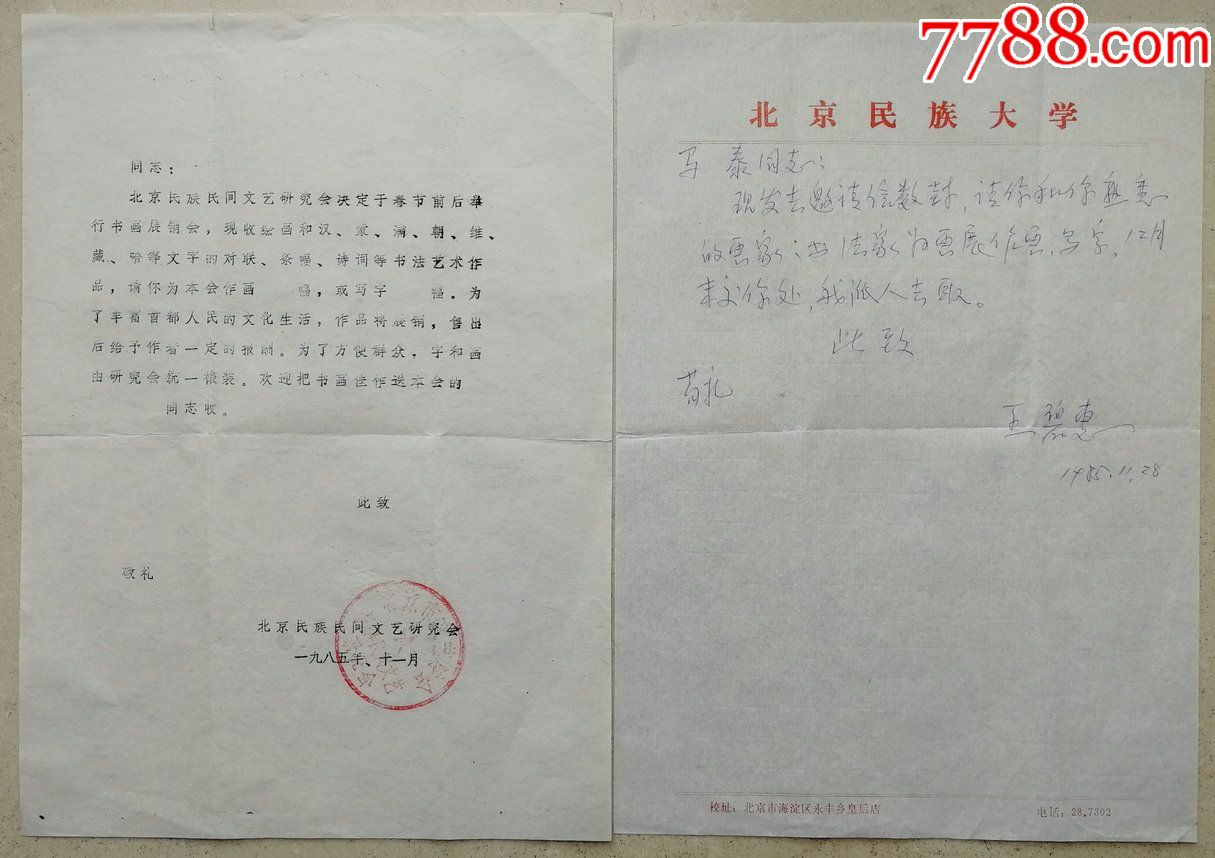 同志：
北京民族民间文艺研究会决定于春节前后举
行书画展销会，现收绘画和汉、蒙、满、朝、维、
藏、哈等文字的对联、条幅、诗词等书法艺术作
品，请你为本会作画　　幅，或写字　　幅．为
了丰富首都人民的文化生活，作品将展销，售出
后给予作者一定的报酬。为了方便群众，字和画
由研究会统一裱装。欢迎把书画佳作送本会的
同志收。
此致
敬礼
北京民族民间文艺研究会
一九八五年、十一月
7788.com
北京民族大学
泰同志：
现发去邀请信数封，请你和你熟悉
的画家、书法家为画展作画、写字，12月
末交你处，我派人去取。
此致
敬礼
王碧惠
1985.11.28
校址：北京市海淀区永丰乡皇后店
电话：28.7302